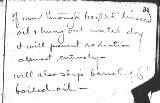 84
If run through boiled linseed
oil & hung out until dry
it will prevent radiation
almost entirely —
will also ship barrel of
boiled oil —